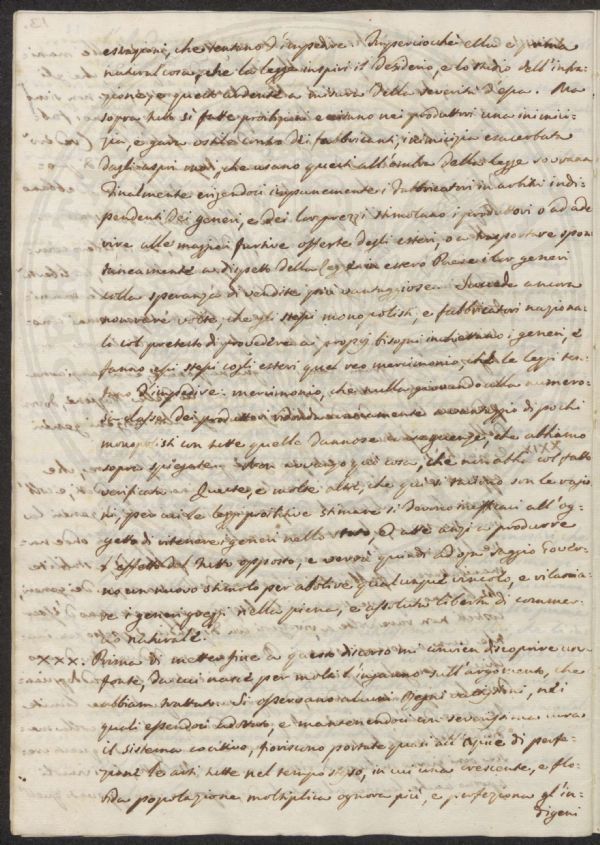 estrazioni, che tentano d'impedire. Imperciocchè ella è prima
natural cosa, che la legge inspiri il desiderio, e lo studio dell'infra-
zione, e quello ardente a misura della severità d'essa. Ma
sopra tutto sì fatte proibizioni eccitano nei produttori una inimici-
zia, e gara ostile contro dei fabbricanti, inimicizia esacerbata
dagli aspri modi, che usano questi all'ombra della legge sovrana
Finalmente erigendosi impunemente i fabbricatori in arbitri indi-
pendenti dei generi, e dei lor prezzi stimolano i produttori o ad ade-
rire alle maggiori furtive offerte degli esteri, o a trasportare spon-
taneamente a dispetto della legge in estero Paese i lor generi
colla speranza di vendite più vantaggiose. Succede ancora
non rare volte, che gli stessi monopolisti, e fabbricatori naziona-
li col pretesto di provedere ai proprj bisogni incettano i generi, e
fanno essi stessi cogli esteri quel reo mercimonio, che le leggi ten-
tano d'impedire: mercimonio, che nulla giovando alla numero-
sa classe dei produttori ridonda unicamente a vantaggio di pochi
monopolisti con tutte quelle dannose conseguenze, che abbiamo
sopra spiegate. Non avvanzo quì cosa, che non abbi col fatto
verificata. Queste, e molte altre, che quì si tacciono son le ragio-
ni, per cui le leggi proibitive stimare si devono inefficaci all'og-
getto di ritenere i generi nello stato, ed atte anzi a produrre
l'effetto del tutto opposto, e verrà quindi ad ogni saggio Gover-
no un nuovo stimolo per abolire qualunque vincolo, e rilascia-
re i generi greggi nella piena, e assoluta libertà di commer-
cio naturale.
XXX. Prima di metter fine a questo discorso mi convien discoprire una
fonte, da cui nasce per molti l'inganno sull'argomento, che
abbiam trattato. Si osservano alcuni Regni vastissimi, nei
quali essendosi adottato, e mantenendosi con severissima cura
il sistema coercitivo, fioriscono portate quasi all'apice di perfe-
zione le arti tutte nel tempo stesso, in cui una crescente, e flo-
rida popolazione moltiplica ognora più, e perfeziona gl'in-
digeni